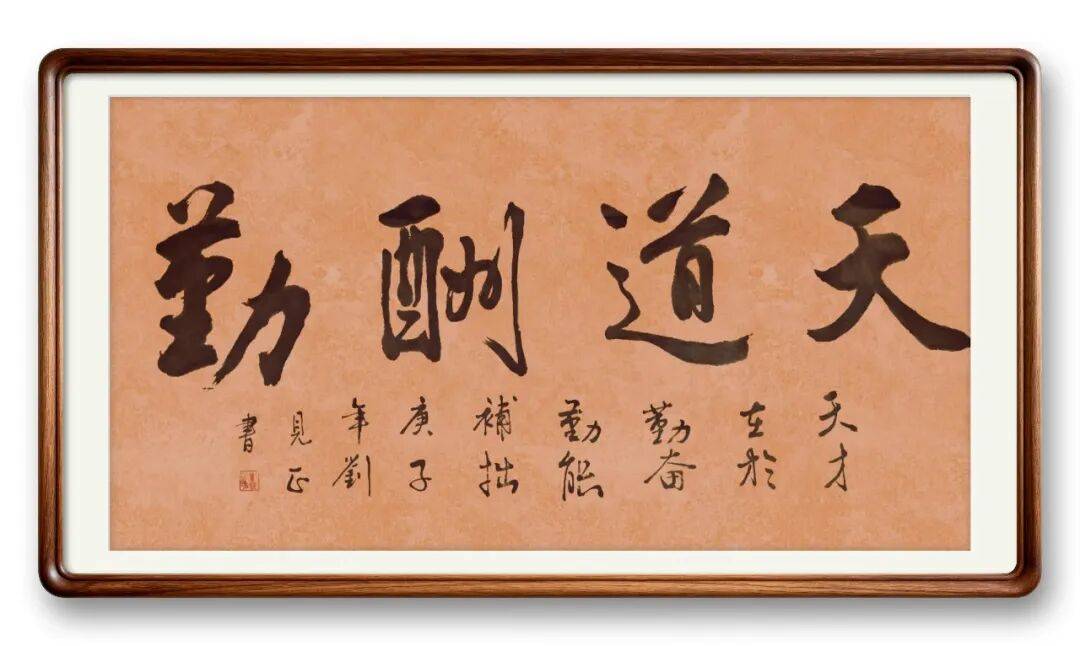 天道酬勤
天才
在於
勤奋
勤能
補拙
庚子
年劉
見正
書